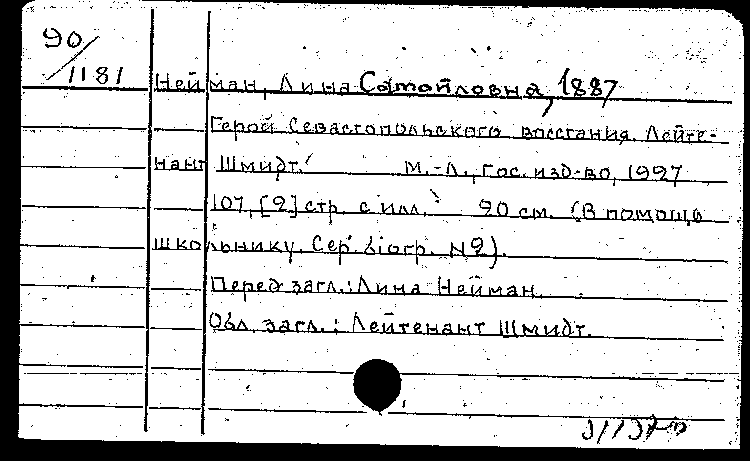 90/1181
Нейман, Лина Самойловна, 1887
Герой Севастопольского восстания. Лейте-
нант Шмидт. М.-Л., Гос. изд-во, 1927
107, [2] стр. с илл. 20 см. (В помощь
школьнику. Сер. биогр. №2).
Перед загл.: Лина Нейман.
Обл. загл.: Лейтенант Шмидт.